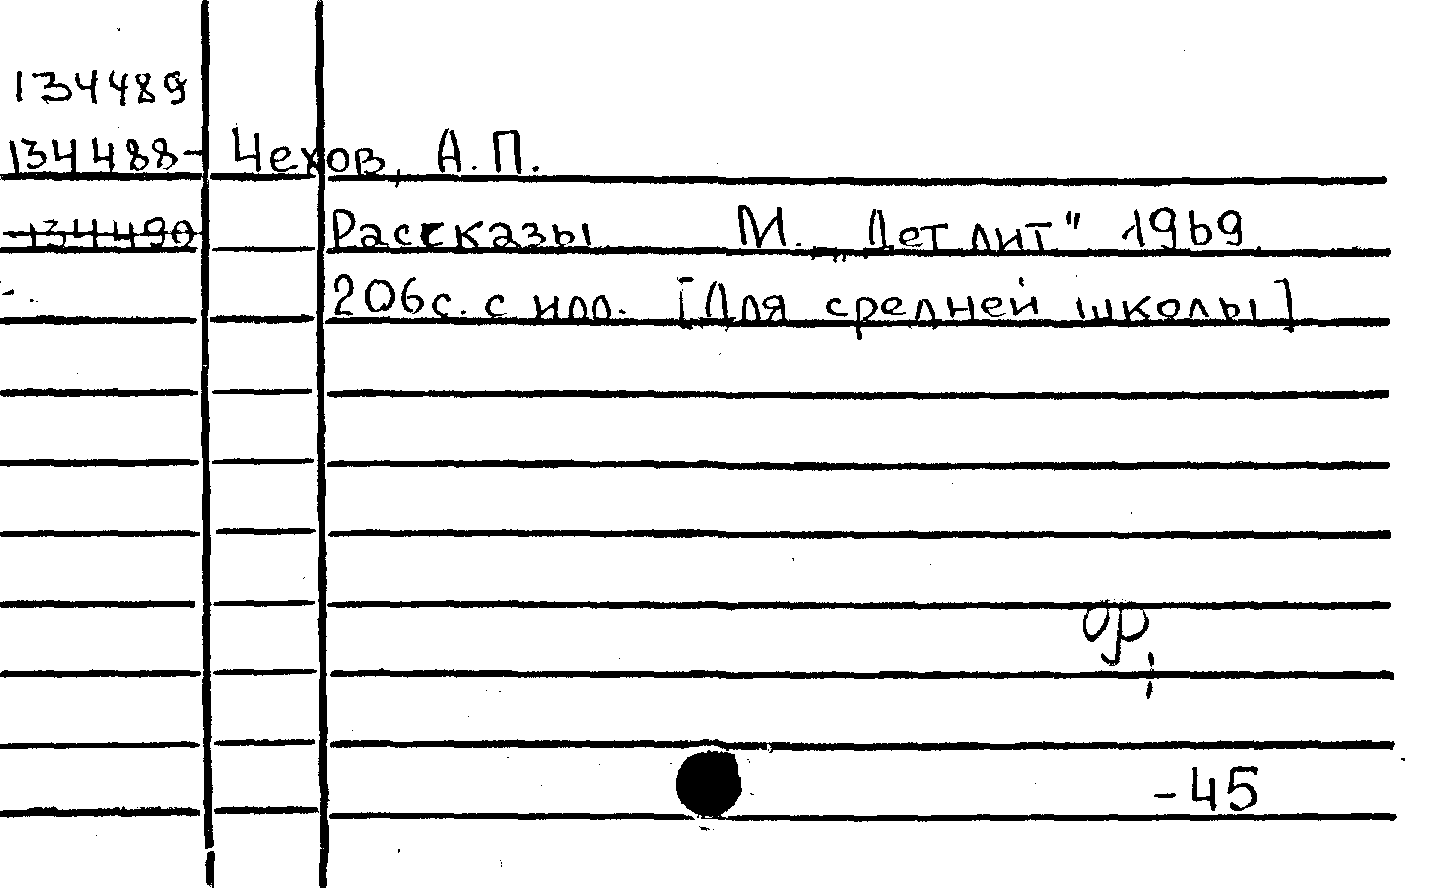 134489
134488- Чехов, А.П.
134490 Рассказы М. „Дет лит" 1969.
206с. с илл. [Для средней школы]
ор,
-45